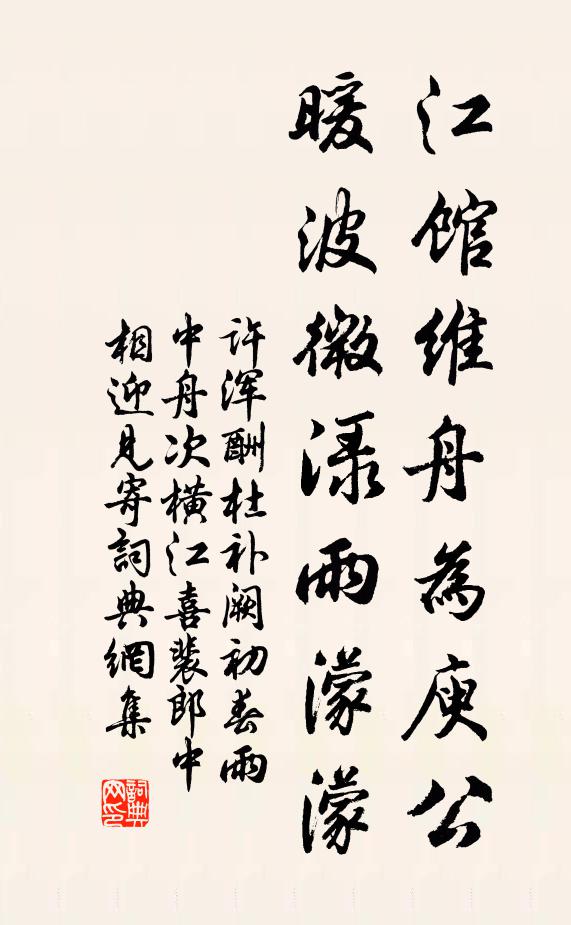 江馆维舟為庾公
暖波微渌雨濛濛
许浑酬杜补阙初春雨
中舟次横江喜裴郎中
相迎见寄詞典網集
詞典
网印